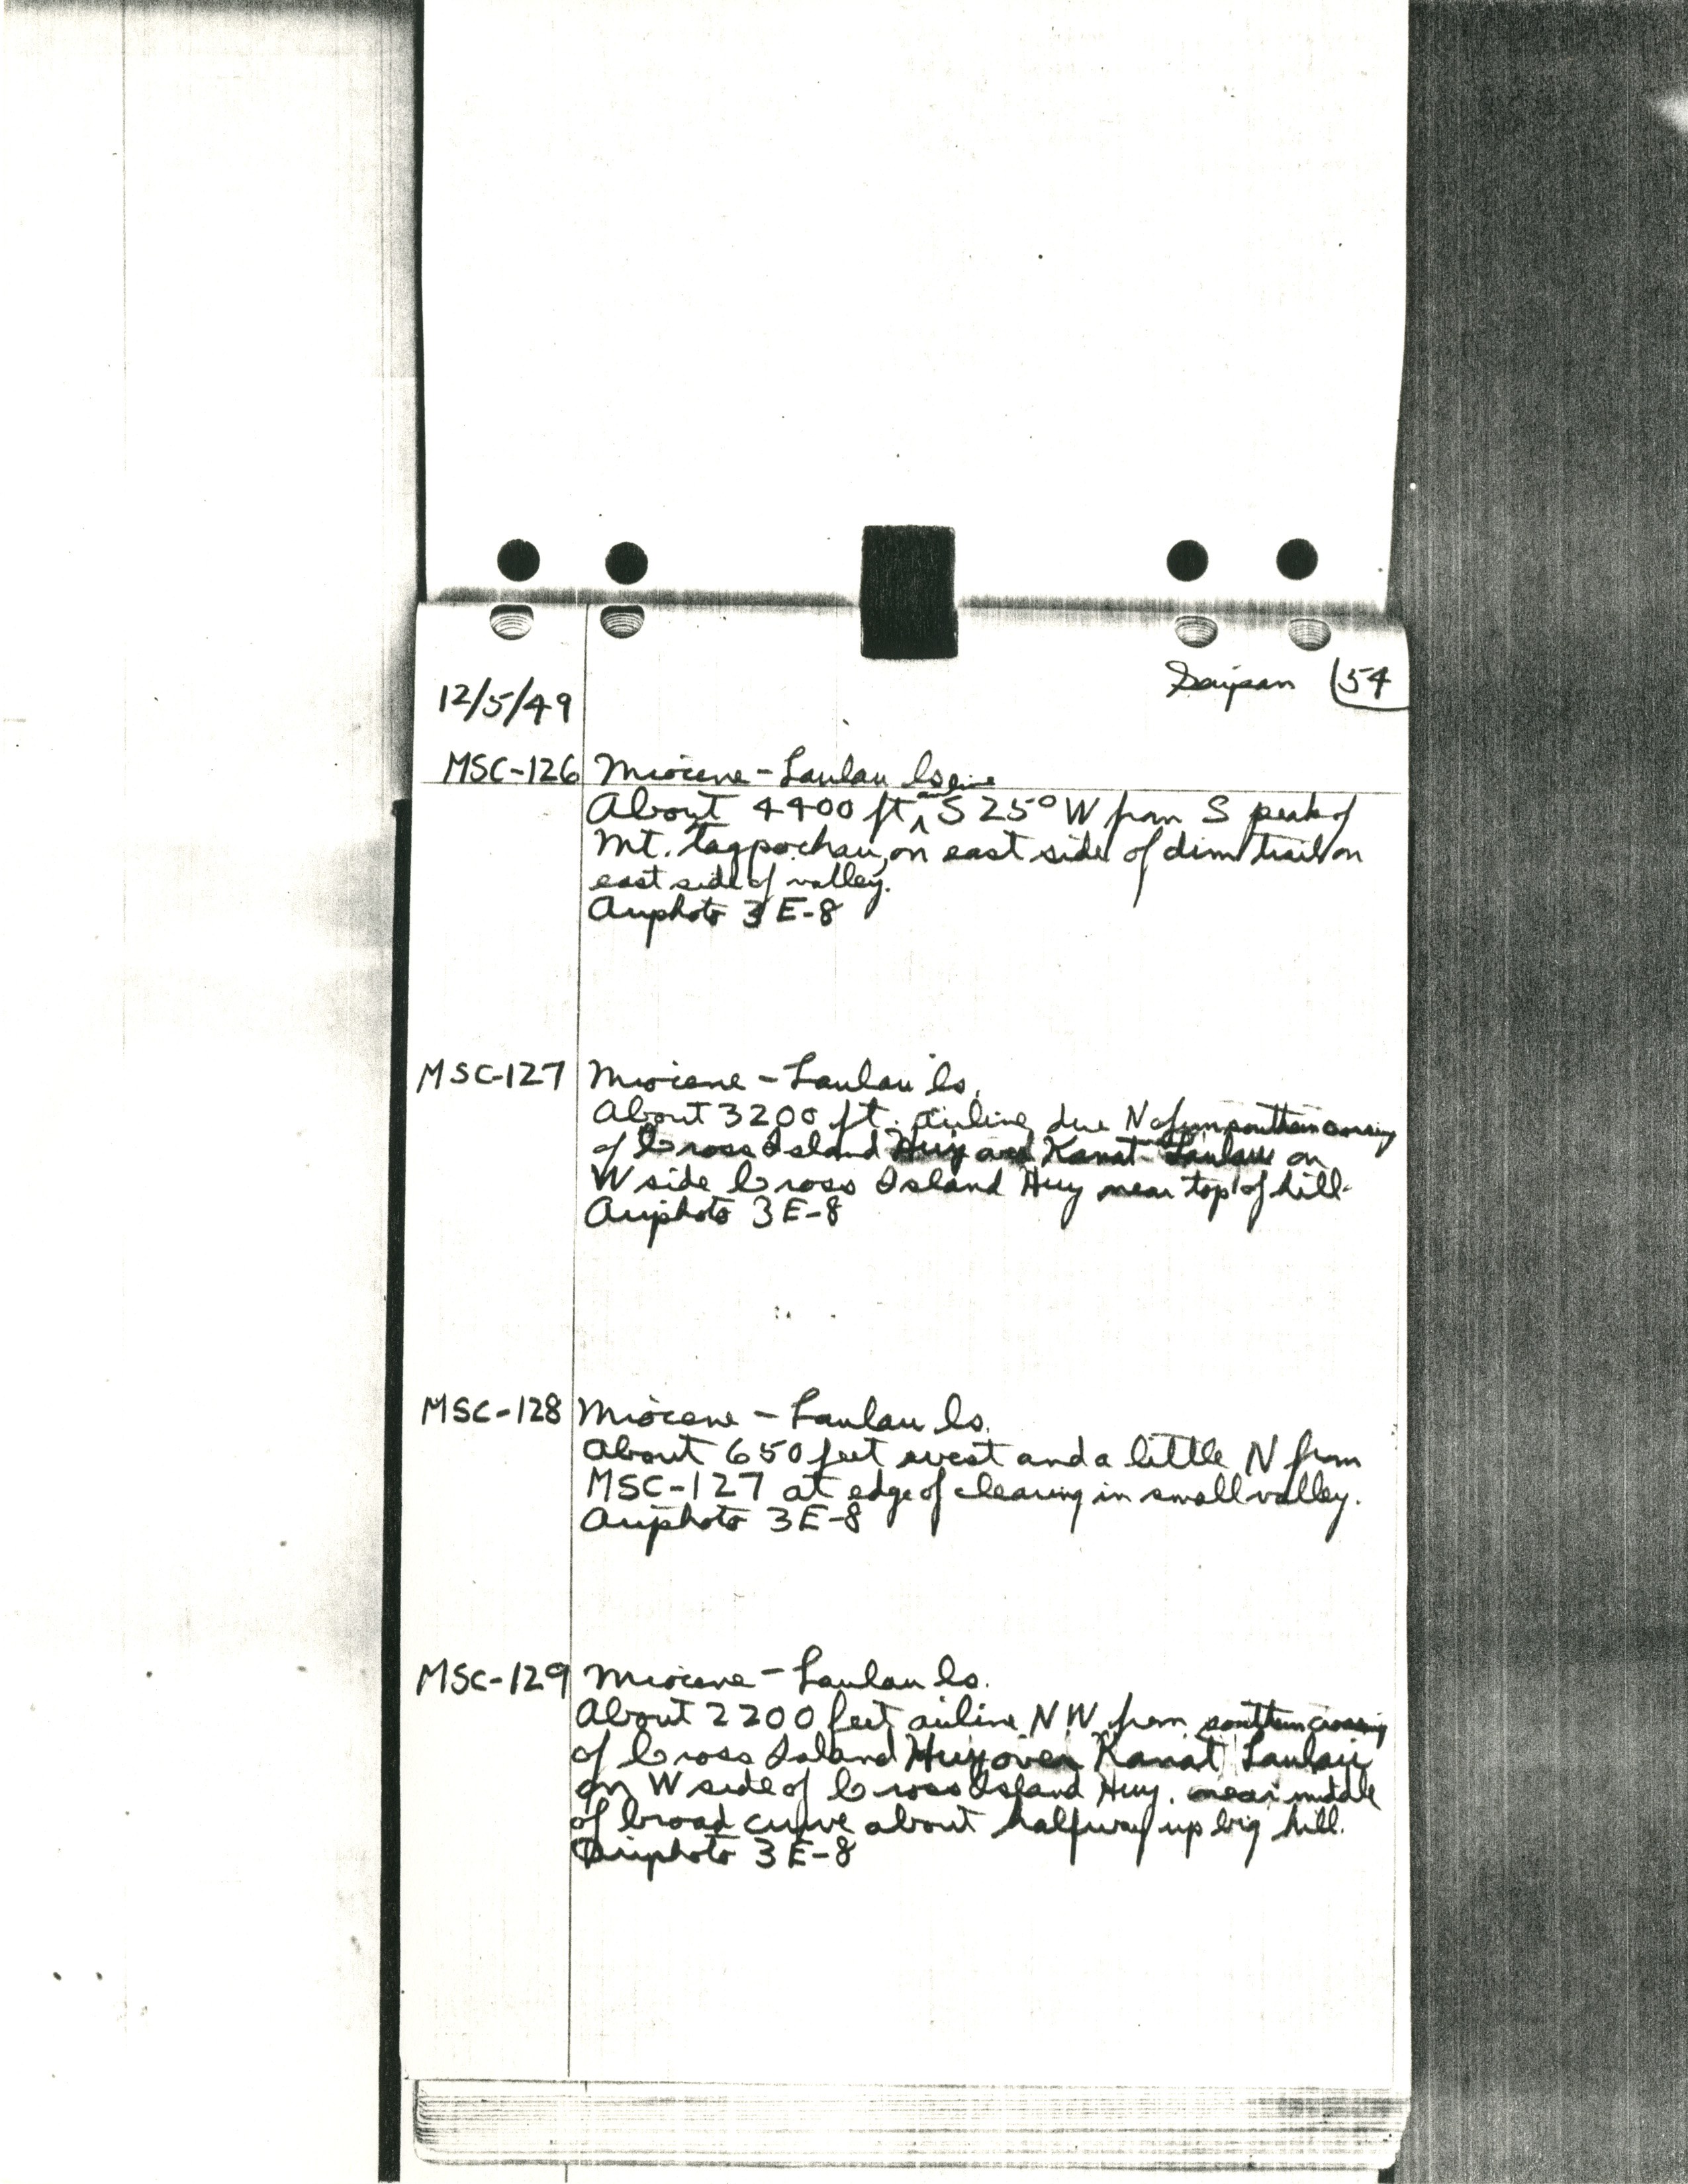 Saipan 54
12/5/49
MSC-126 Miocene - Laulau ls.
airline
About 4400 ft. S 25° W from S peak of
Mt. Tagpochau, on east side of dim trail on
east side of valley.
Airphoto 3E-8
MSC-127 Miocene - Laulau ls.
About 3200 ft. airline due N of southern crossing
of Cross Island Hwy over Kanat Laulau on
W side Cross Island Hwy near top of hill.
Airphoto 3E-8
MSC-128 Miocene - Laulau ls.
About 650 feet west and a little N from
MSC-127 at edge of clearing in small valley.
Airphoto 3E-8
MSC-129 Miocene - Laulau ls.
About 2200 feet airline NW from southern crossing
of Cross Island Hwy over Kanat Laulau
on W side of Cross Island Hwy. near middle
of broad curve about halfway up big hill.
Airphoto 3E-8